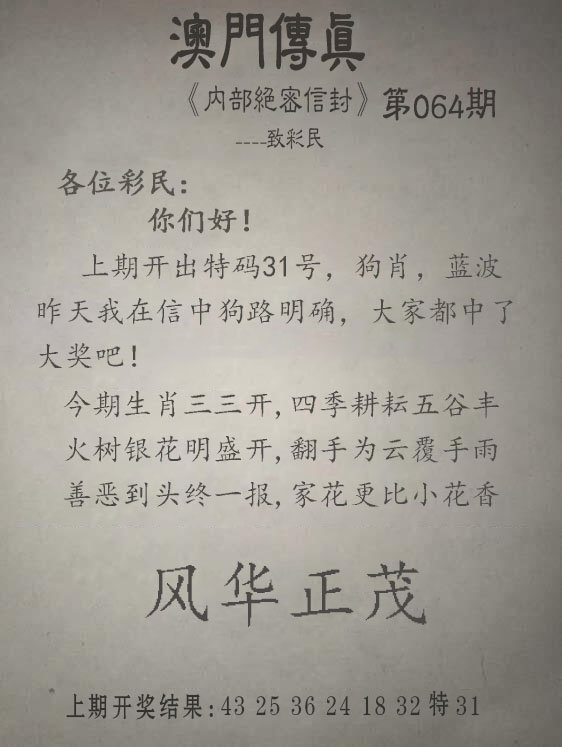 澳門傳眞
《内部絕密信封》第064期
----致彩民
各位彩民：
你们好！
上期开出特码31号，狗肖，蓝波
昨天我在信中狗路明确，大家都中了
大奖吧！
今期生肖三三开,四季耕耘五谷丰
火树银花明盛开,翻手为云覆手雨
善恶到头终一报,家花更比小花香
风华正茂
上期开奖结果:43 25 36 24 18 32特31